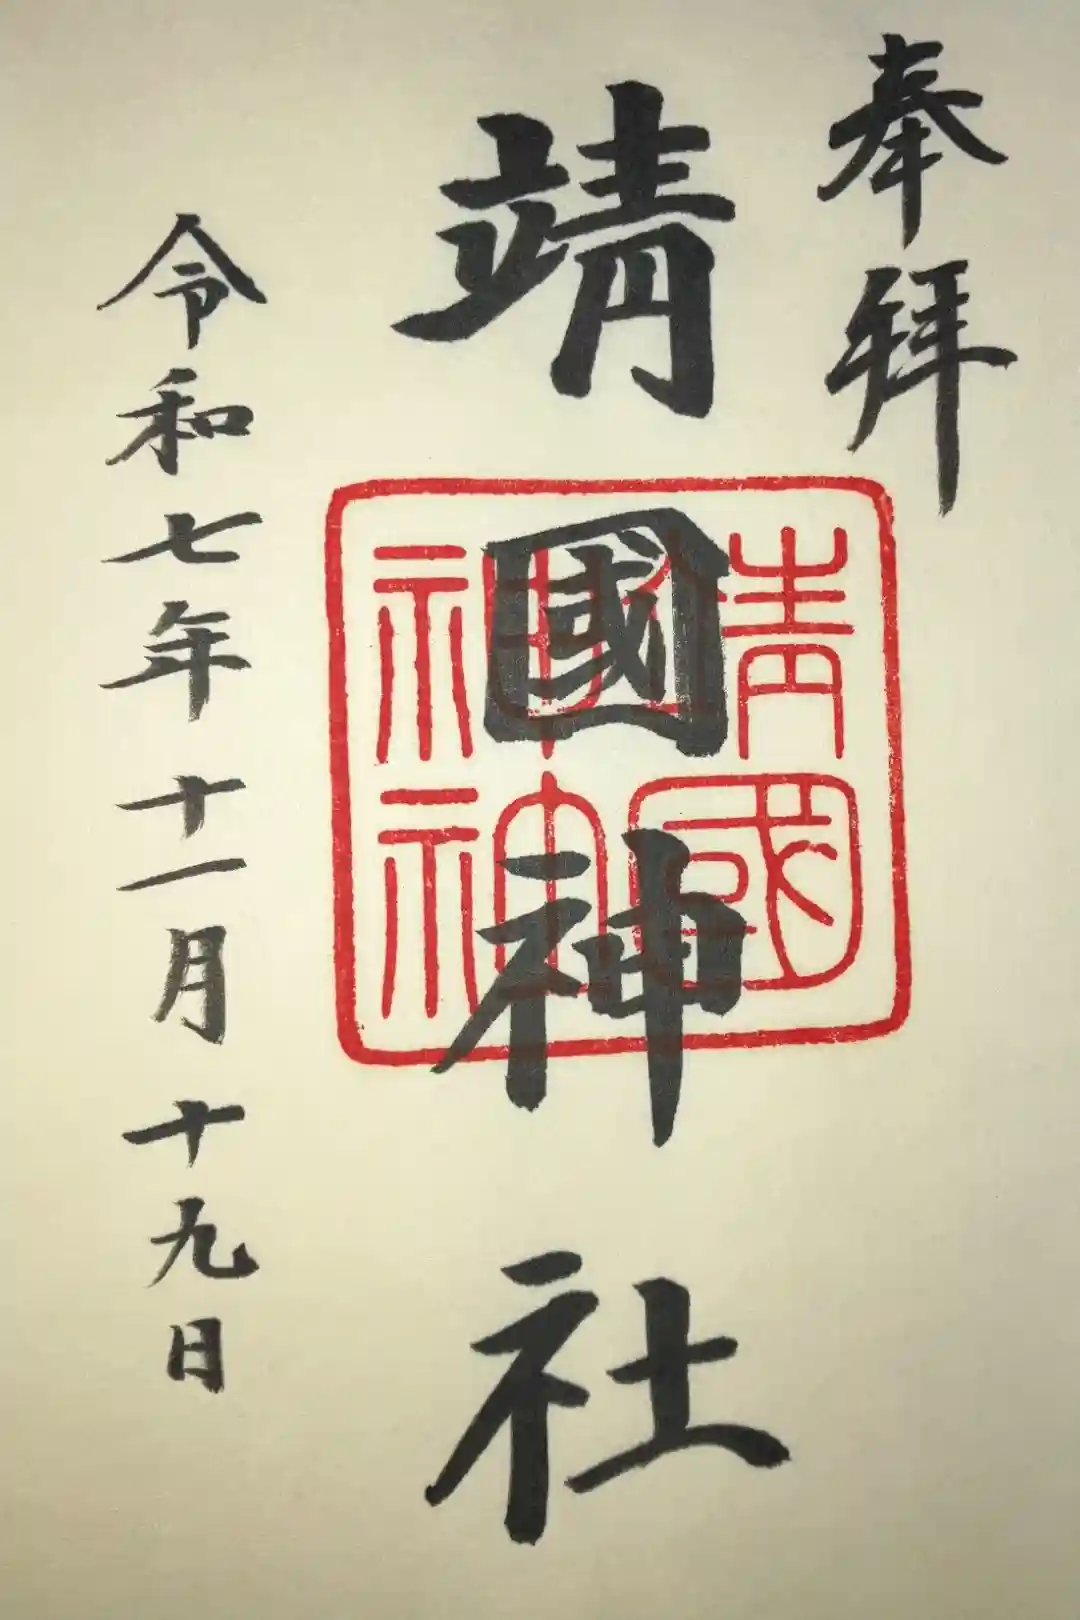 奉拜
靖國神社
靖國神社神社
令和七年十一月十九日